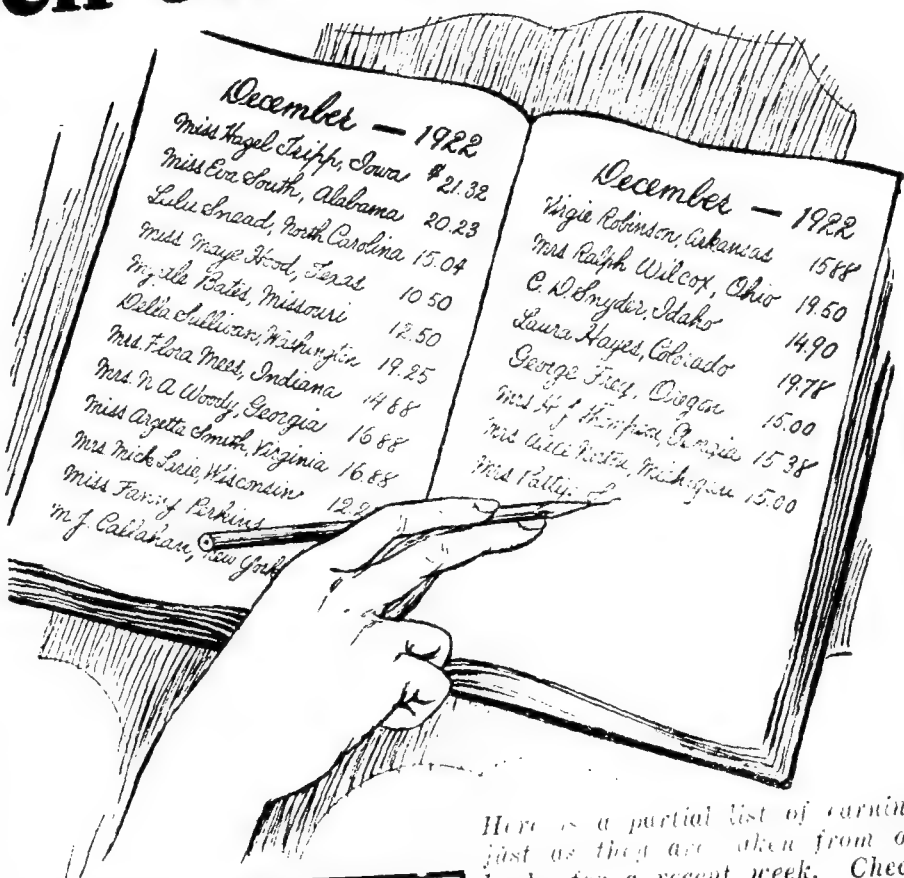 December — 1922
Miss Hazel Tripp, Iowa $21.32
Miss Eva South, Alabama 20.23
Lulu Snead, North Carolina 15.04
Miss Maye Hood, Texas 10 50
Myrtle Bates, Missouri 12.50
Della Sullivan, Washington 19.25
Mrs. Flora Mees, Indiana 14 88
Mrs. N A Woody, Georgia 16 88
Miss Argetta Smith, Virginia 16.88
Mrs Mick Wisconsin 12.2
Miss Fanny Perkins
M J. Callahan, New York
December — 1922
Virgie Robinson, Arkansas 1588
Mrs Ralph Wilcox, Ohio 19.50
C. D. Snyder, Idaho 14.90
Laura Hayes, Colorado 19.78
George Frey, Oregon 15.00
Mrs Thompson, Georgia 15 38
Mrs Michigan 15.00
Mrs
Here is a partial list of
just as they are taken from
for a recent week.